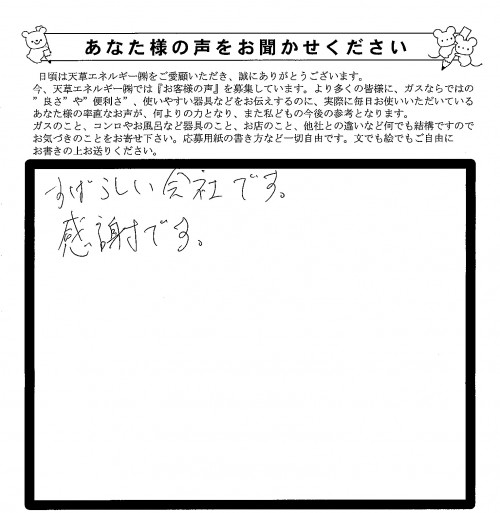 あなた様の声をお聞かせください
日頃は天草エネルギー㈱をご愛顧いただき、誠にありがとうございます。
今、天草エネルギー㈱では『お客様の声』を募集しています。より多くの皆様に、ガスならではの
”良さ”や”便利さ”、使いやすい器具などをお伝えするのに、実際に毎日お使いいただいている
あなた様の率直なお声が、何よりの力となり、また私どもの今後の参考となります。
ガスのこと、コンロやお風呂など器具のこと、お店のこと、他社との違いなど何でも結構ですので
お気づきのことをお寄せ下さい。応募用紙の書き方など一切自由です。文でも絵でもご自由に
お書きの上お送りください。
すばらしい会社です。
感謝です。